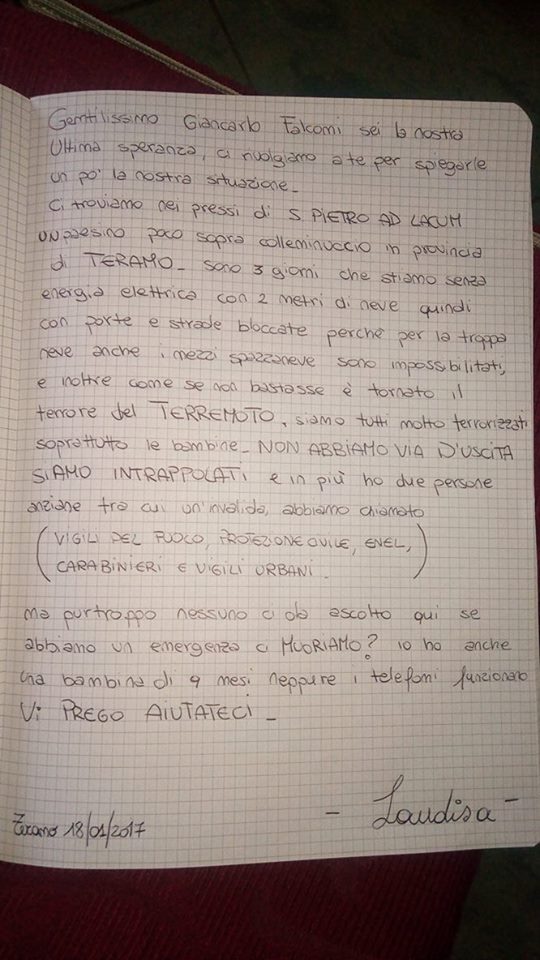 Gentilissimo Giancarlo Falconi sei la nostra
Ultima speranza, ci rivolgiamo a te per spiegarle
un po' la nostra situazione_
Ci troviamo nei pressi di S. PIETRO AD LACUM
UN paesino poco sopra colleminuccio in provincia
di TERAMO_ sono 3 giorni che stiamo senza
energia elettrica con 2 metri di neve quindi
con porte e strade bloccate perché per la troppa
neve anche i mezzi spazzaneve sono impossibilitati,
e inoltre come se non bastasse è tornato il
terrore del TERREMOTO, siamo tutti molto terrorizzati
soprattutto le bambine_ NON ABBIAMO VIA D'USCITA
SIAMO INTRAPPOLATI e in più ho due persone
anziane tra cui un'invalida, abbiamo chiamato
(VIGILI DEL FUOCO, PROTEZIONE CIVILE, ENEL,
CARABINIERI E VIGILI URBANI.)
ma purtroppo nessuno ci dà ascolto qui se
abbiamo un emergenza ci MUORIAMO? io ho anche
una bambina di 9 mesi neppure i telefoni funzionano
Vi PREGO AIUTATECI_
- Laudisa -
Teramo 18/01/2017